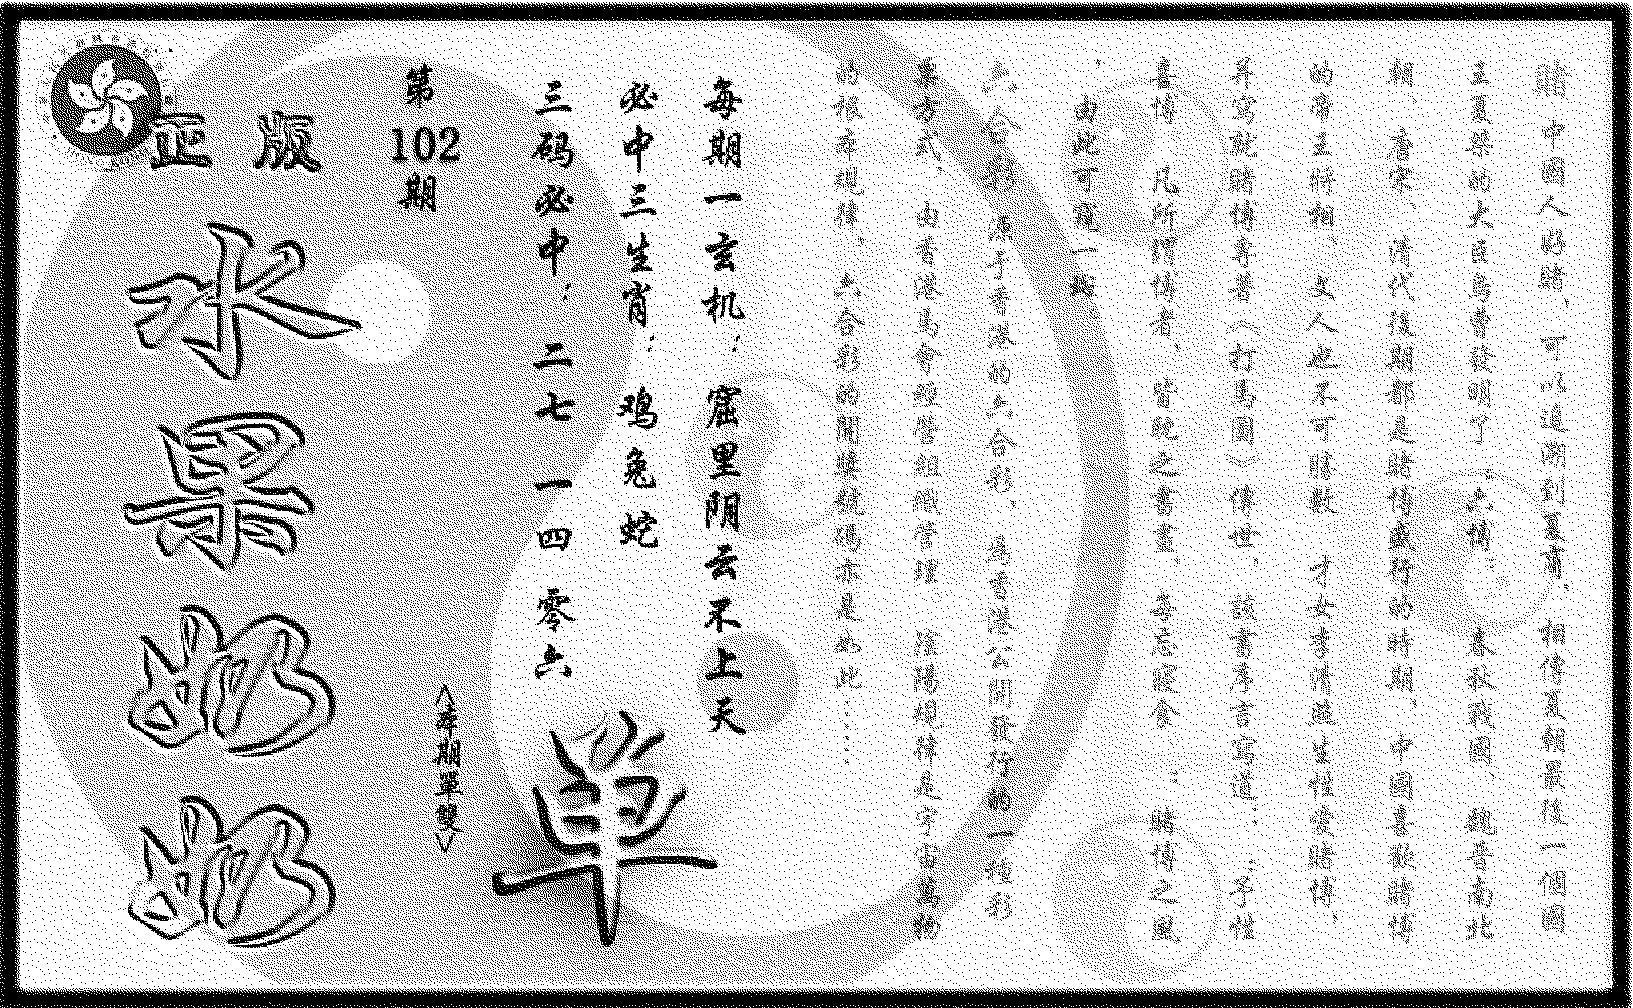 賭 中國人好賭,可以追溯到夏商.相傳夏朝最後一個國
王夏桀的大臣烏曹發明了:六博: 春秋戰國、魏晉南北
朝 唐宋、清代後期都是賭博盛行的時期. 中國喜歡賭博
的帝王將相 文人也不可勝數 才女李清照生性愛賭博,
并寫就賭博專著〈打馬圖〉傳世. 該書序言寫道: :予性
喜博 凡所謂博者、皆耽之晝 每忘寢食 : 賭博之風
. 由此可窺一斑
六合彩 源于香港的六合彩、為香港公開發行的一種彩
票方式、由香港馬會經營組織管理 陰陽規律是宇宙萬物
的根本規律, 六合彩的開獎號碼亦是如此......
每期一玄机: 窟里阴云不上天
必中三生肖: 鸡兔蛇
三码必中: 二七 一四 零六
单
〈本期單雙〉
第102期
正版
水果奶奶